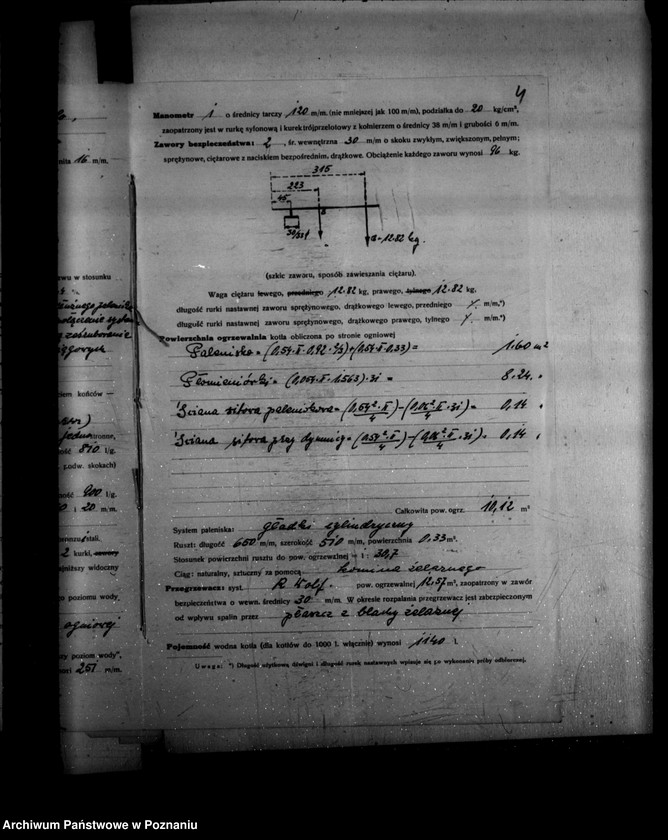 4
Manometr 1 o średnicy tarczy 120 m/m. (nie mniejszej jak 100 m/m), podziałka do 20 kg/cm²,
zaopatrzony jest w rurkę syfonową i kurek trójprzelotowy z kołnierzem o średnicy 38 m/m i grubości 6 m/m.
Zawory bezpieczeństwa: 2, śr. wewnętrzna 30 m/m o skoku zwykłym, zwiększonym, pełnym;
sprężynowe, ciężarowe z naciskiem bezpośrednim, drążkowe. Obciążenie każdego zaworu wynosi 96 kg.
315
223
45
12.82 kg.
(szkic zaworu, sposób zawieszania ciężaru).
Waga ciężaru lewego, przedniego 12.82 kg, prawego, tylnego 12.82 kg,
długość rurki nastawnej zaworu sprężynowego, drążkowego lewego, przedniego m/m,*)
długość rurki nastawnej zaworu sprężynowego, drążkowego prawego, tylnego m/m,*)
Powierzchnia ogrzewalnia kotła obliczona po stronie ogniowej
Palenisko = (0.54·π·0.92·2/3)+(0.54·π·0.33) = 1.60 m²
Płomieniówki = (0.054·π·1.563)·31 = 8.24 "
Ściana sitowa paleniskowa = 0,14 "
Ściana sitowa przy dymnicy = 0,14 "
Całkowita pow. ogrz. 10,12 m²
System paleniska: gładki cylindryczny
Ruszt: długość 650 m/m, szerokość 510 m/m, powierzchnia 0.33 m².
Stosunek powierzchni rusztu do pow. ogrzewalnej = 1 : 30,7
Ciąg: naturalny, sztuczny za pomocą komina żelaznego
Przegrzewacz: syst. R Wolf pow. ogrzewalnej 12.57 m², zaopatrzony w zawór
bezpieczeństwa o wewn. średnicy 30 m/m. W okresie rozpalania przegrzewacz jest zabezpieczonym
od wpływu spalin przez płaszcz z blachy żelaznej
Pojemność wodna kotła (dla kotłów do 1000 l. włącznie) wynosi 1140 l
Uwaga: *) Długość użytkową dźwigni i długość rurek nastawnych wpisuje się po wykonaniu próby odbiorczej.
16 m/m.
w stosunku
końców —
stronne,
810 l/g.
podw. skokach)
900 l/g.
i 20 m/m.
stali.
2 kurki,
widoczny
poziom wody
ogniowej
poziom wody",
257 m/m.
Archiwum Państwowe w Poznaniu